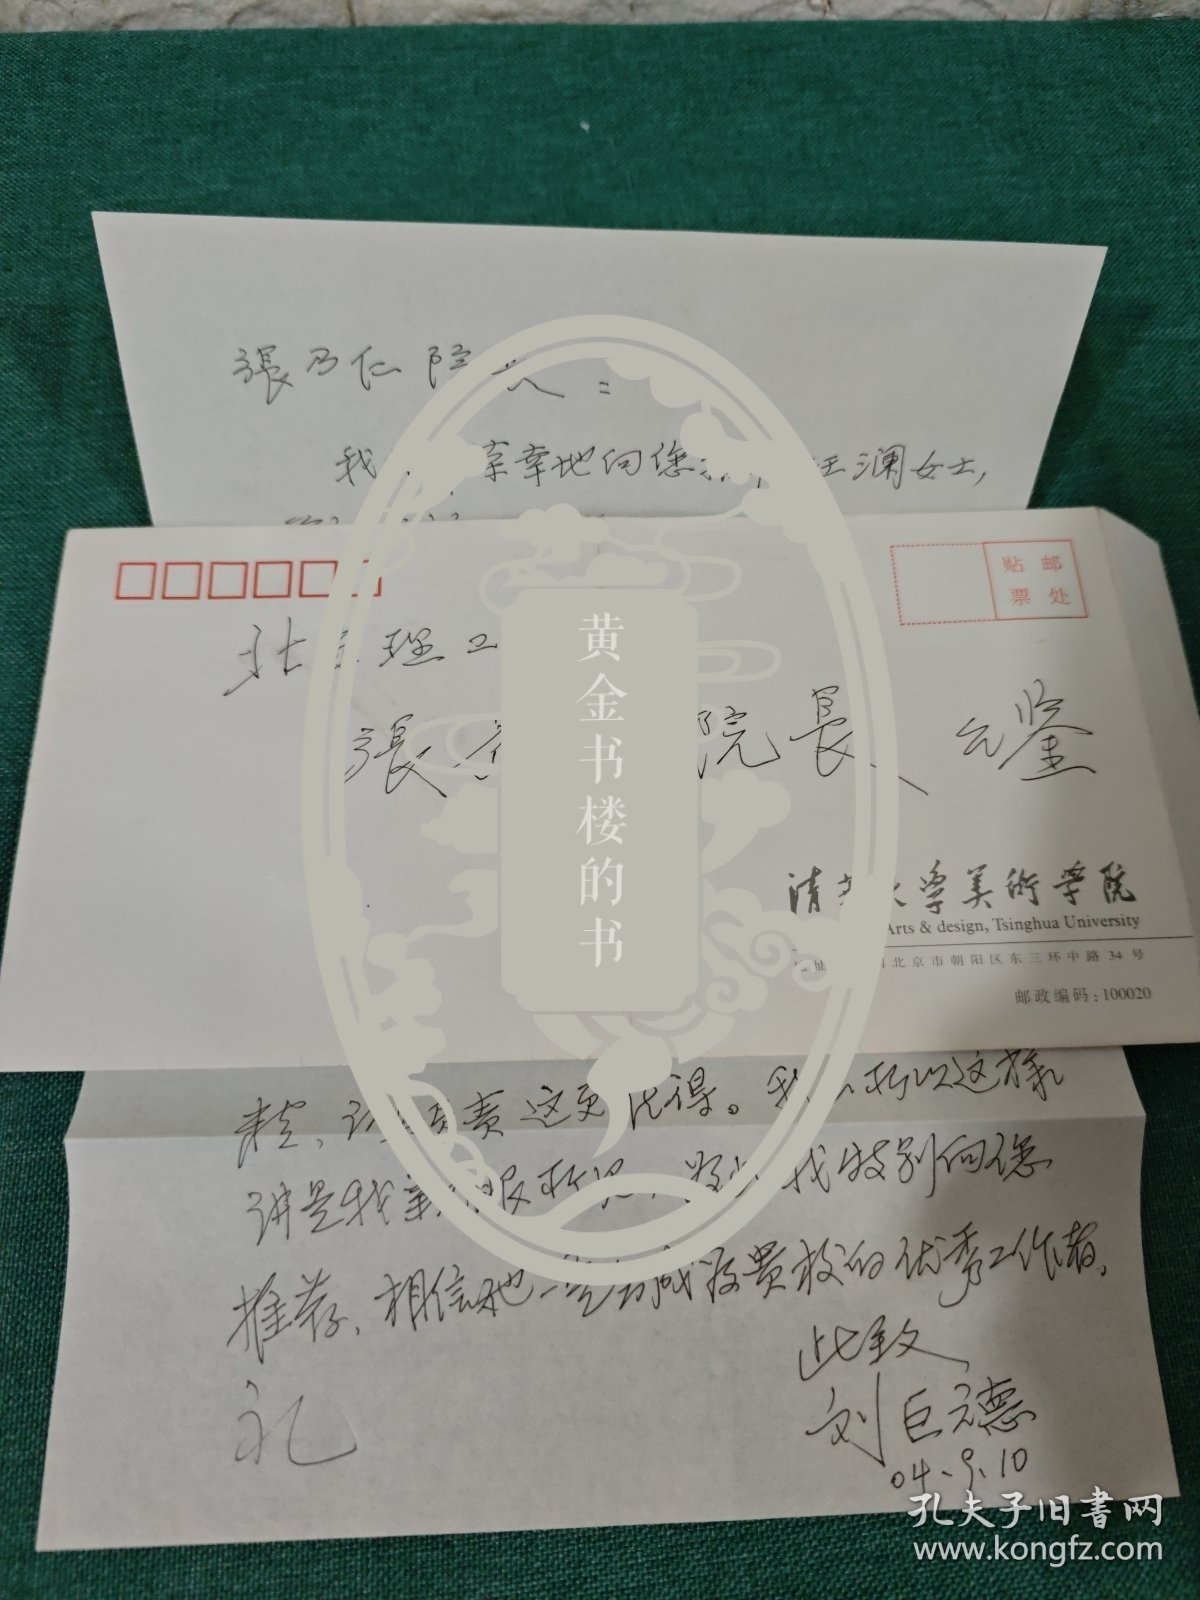 張乃仁院长：
我 荣幸地向您 汪澜女士，
贴邮
票处
北京理工
張 院長 台鉴
黄金书楼的书
清华大学美術学院
Arts & design, Tsinghua University
北京市朝阳区东三环中路 34 号
邮政编码：100020
认真负责这更 得。我之所以这样
讲是我亲眼所见，我特别向您
推荐，相信她一定 成为贵校的优秀工作者，
此致
礼
刘巨德
04.9.10
孔夫子旧書网
www.kongfz.com